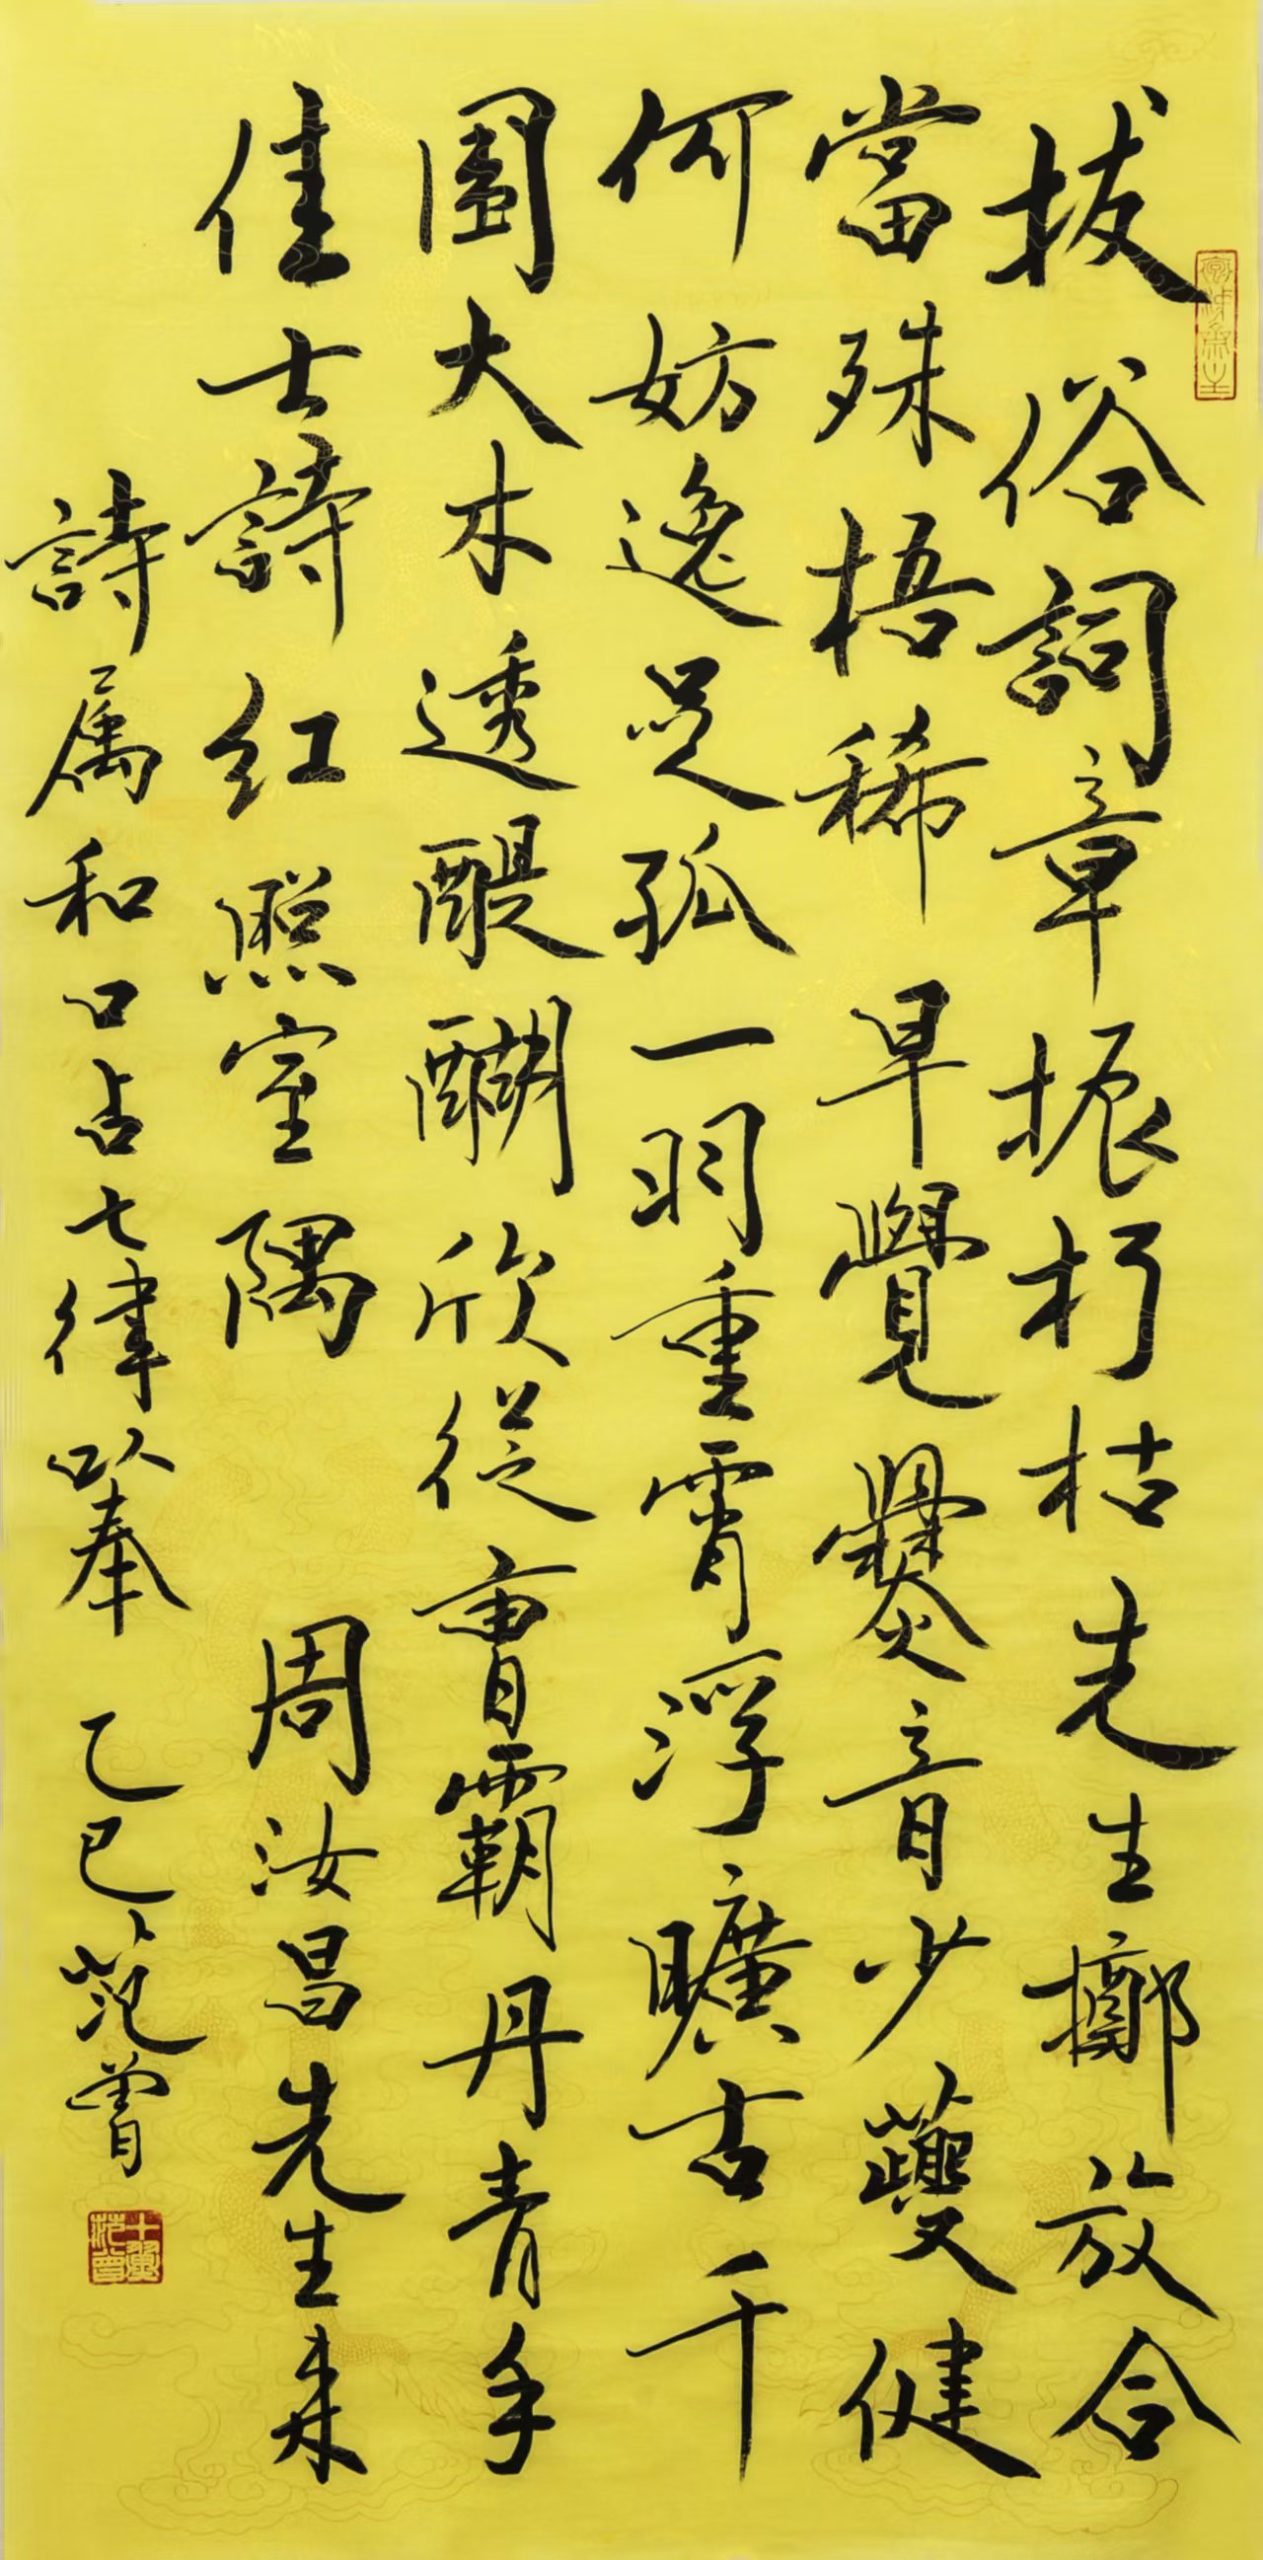 拔俗詞章振朽枯先生擲放合
當殊梧稀早覺爨音少夔健
何妨逸足孤一羽重霄浮曠古千
圍大木透醍醐欣從曹霸丹青手
佳士詩紅照室隅 周汝昌先生来
詩属和口占七律以奉 乙巳 范曾
十翼范曾